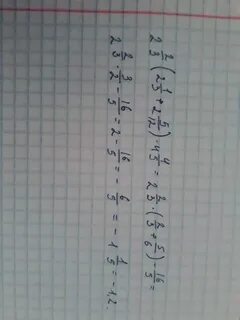 2 2/3 (2 1/3 + 2 5/12) - 4 4/5 = 2 2/3 · (2/3 + 5/6) - 16/5 =
2 2/3 · 3/2 - 16/5 = 2 - 16/5 = - 6/5 = - 1 1/5 = -1,2.